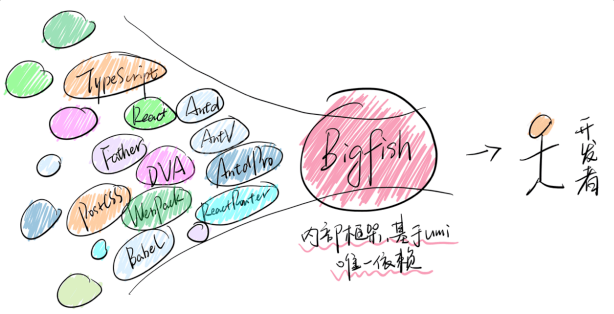 TypeScript
React
Antd
Father
AntV
DVA
AntdPro
PostCSS
WebPack
ReactRouter
Babel
Bigfish
内部框架,基于umi
唯一依赖
开发者